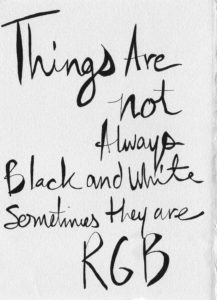 Things Are
not
Always
Black and White
Sometimes they are
RGB